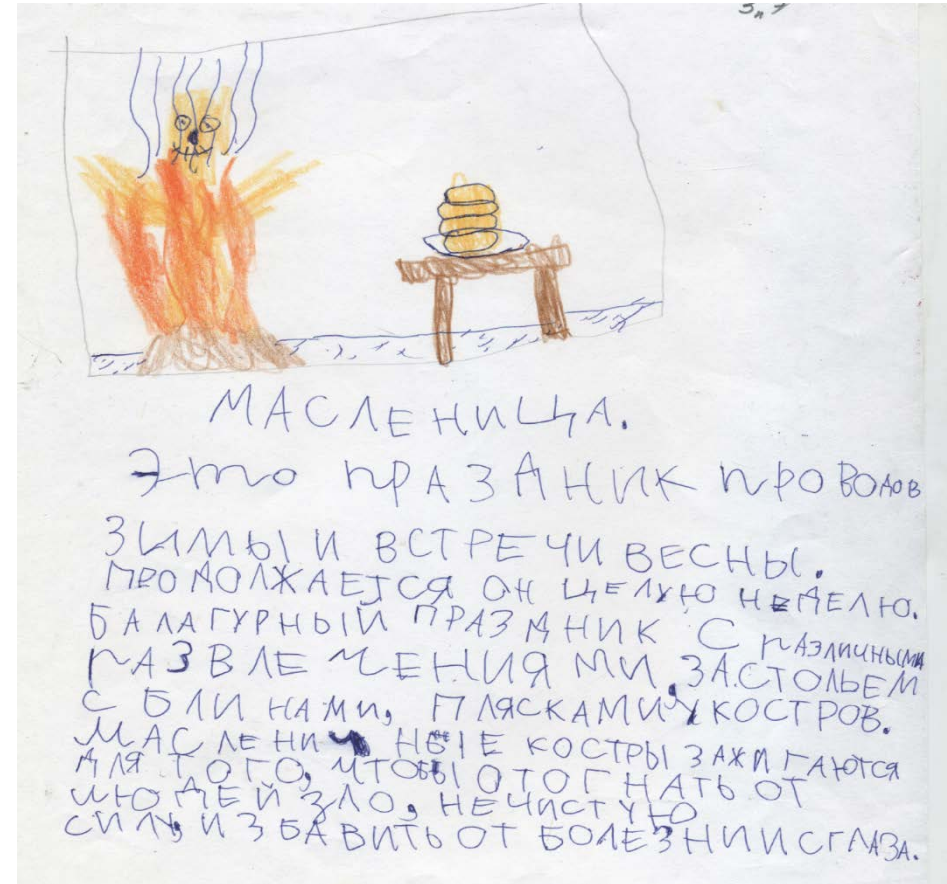 МАСЛЕНИЦА.
Это ПРАЗДНИК ПРОВОДОВ
ЗИМЫ И ВСТРЕЧИ ВЕСНЫ.
ПРОДОЛЖАЕТСЯ ОН ЦЕЛУЮ НЕДЕЛЮ.
БАЛАГУРНЫЙ ПРАЗДНИК С РАЗЛИЧНЫМИ
РАЗВЛЕЧЕНИЯМИ, ЗАСТОЛЬЕМ
С БЛИНАМИ, ПЛЯСКАМИ У КОСТРОВ.
МАСЛЕНИЧНЫЕ КОСТРЫ ЗАЖИГАЮТСЯ
ДЛЯ ТОГО, ЧТОБЫ ОТОГНАТЬ ОТ
ЛЮДЕЙ ЗЛО, НЕЧИСТУЮ
СИЛУ, ИЗБАВИТЬ ОТ БОЛЕЗНИ И СГЛАЗА.